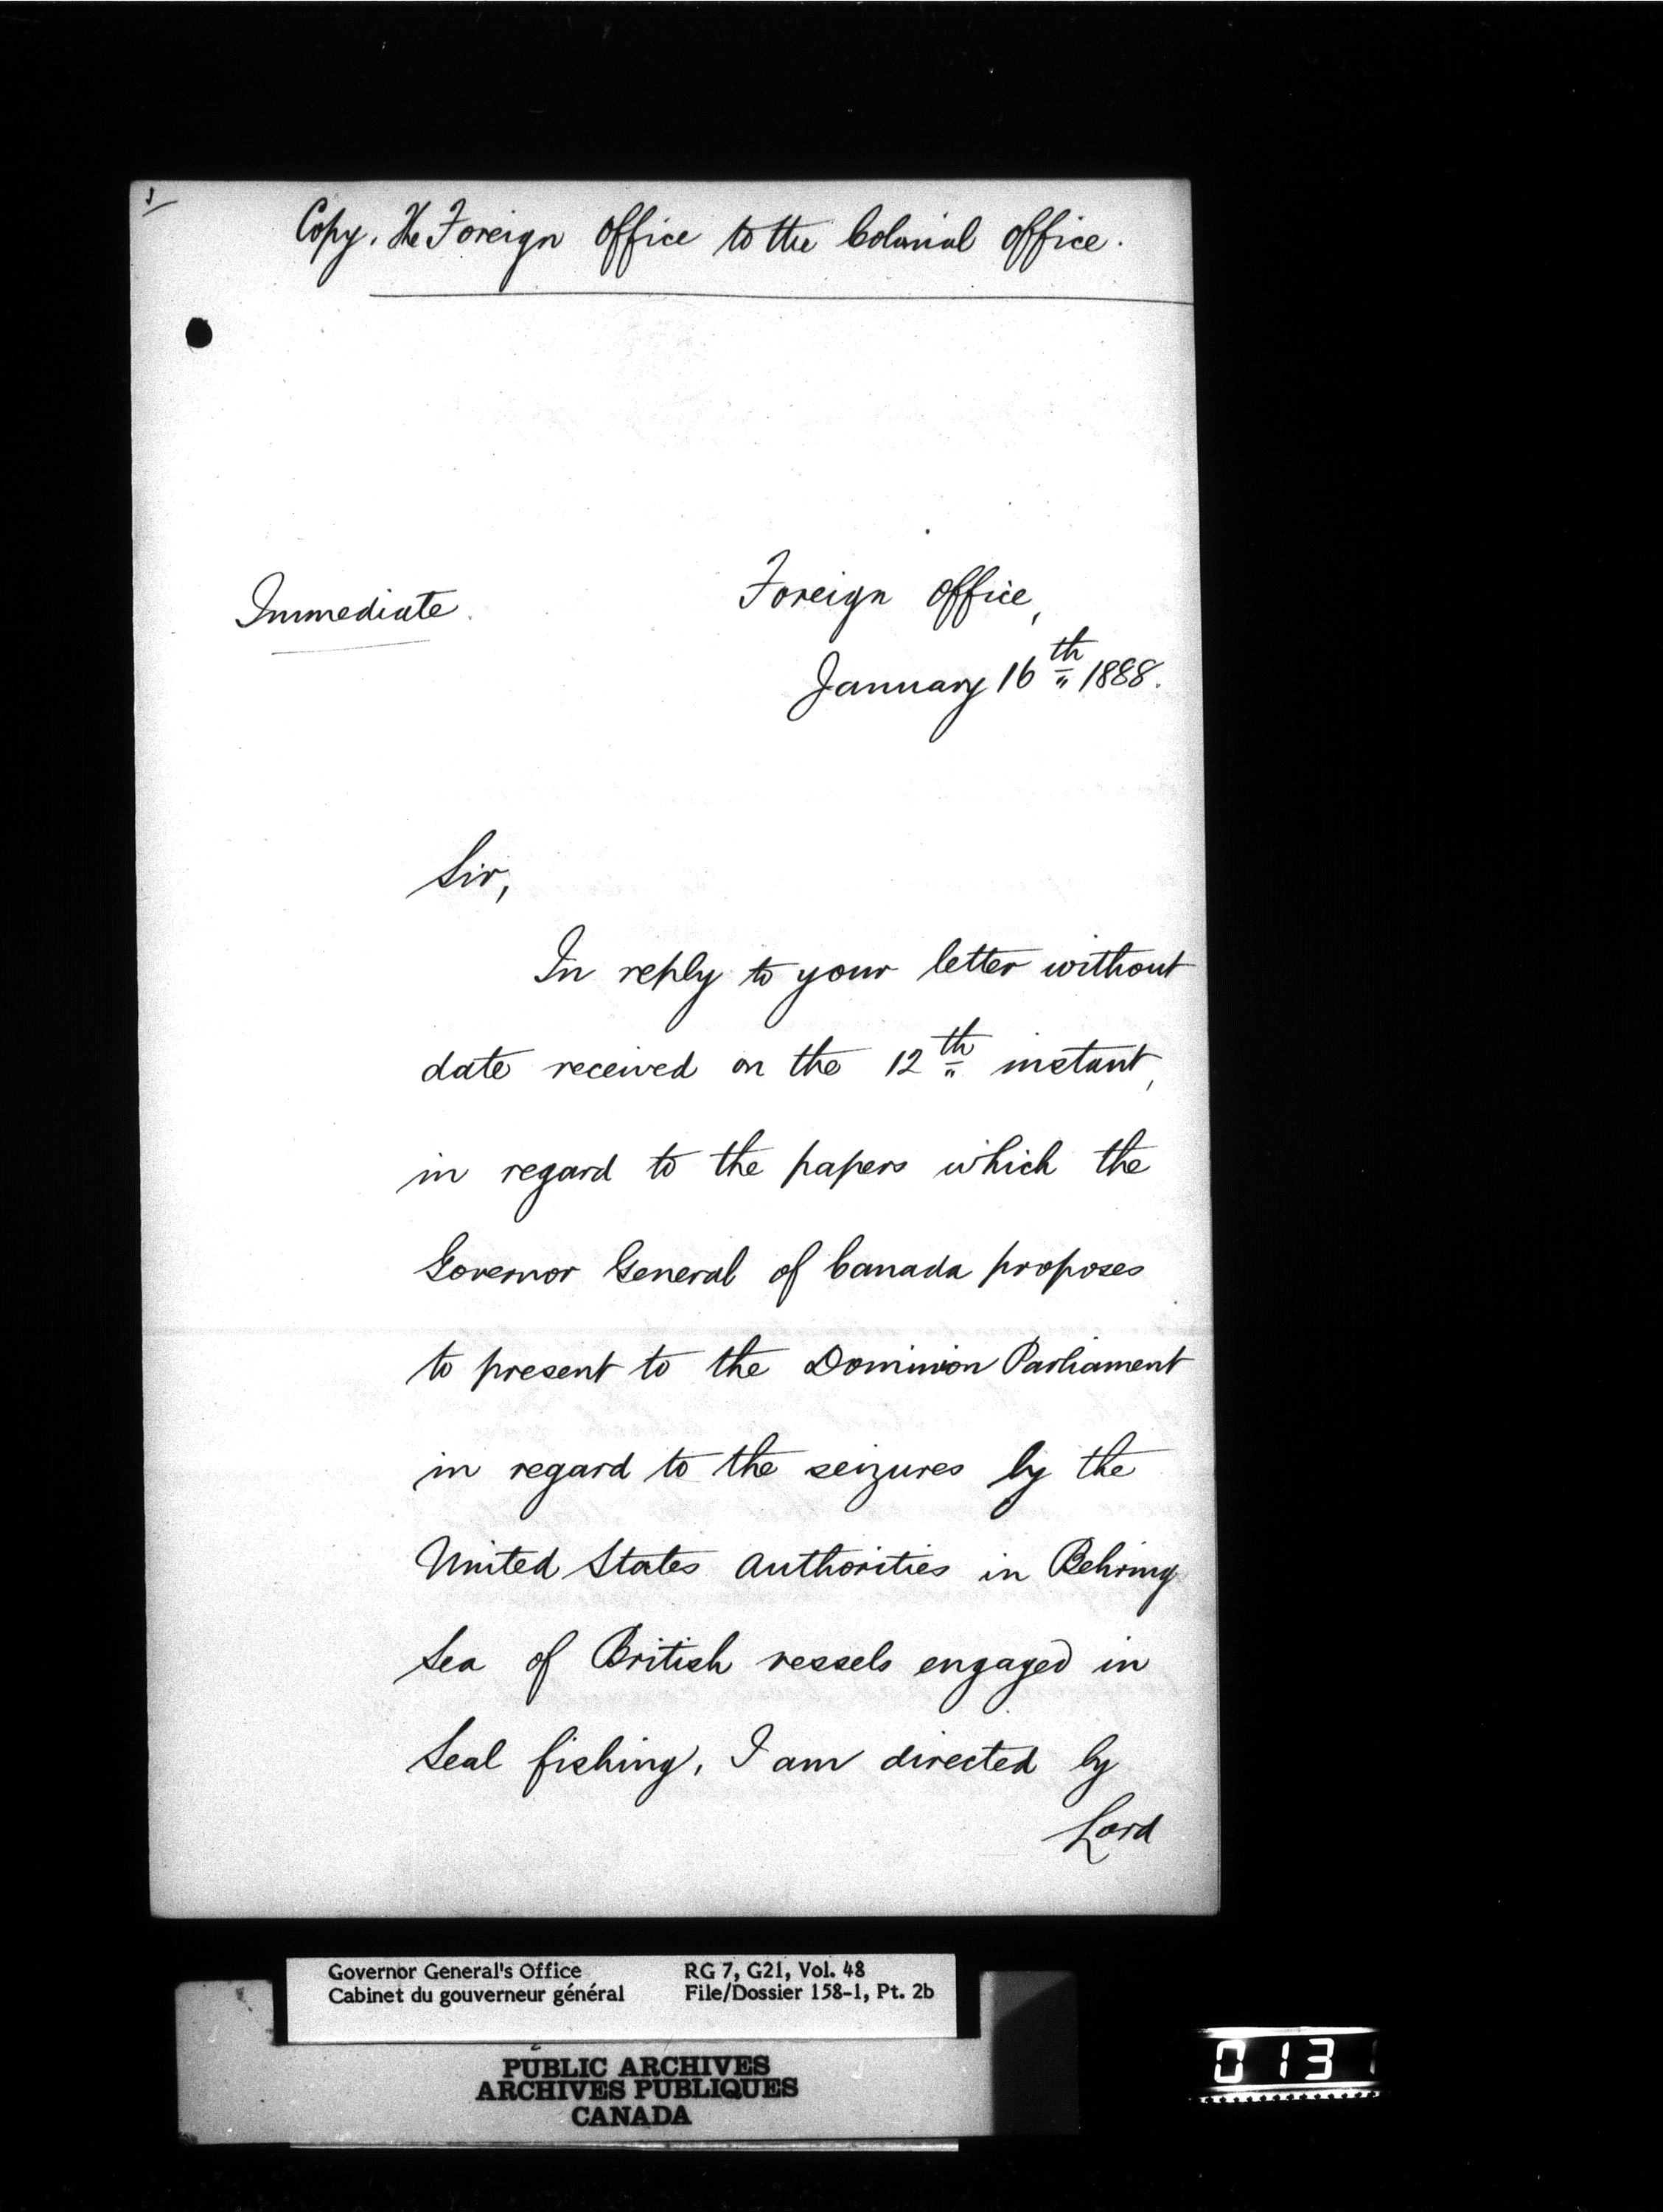 Copy. The Foreign Office to the Colonial Office.
Immediate.
Foreign Office,
January 16th 1888.
Sir,
In reply to your letter without
date received on the 12th instant,
in regard to the papers which the
Governor General of Canada proposes
to present to the Dominion Parliament
in regard to the seizures by the
United States Authorities in Behring
Sea of British vessels engaged in
Seal fishing, I am directed by
Lord
Governor General's Office RG 7, G21, Vol. 48
Cabinet du gouverneur général File/Dossier 158-1, Pt. 2b
PUBLIC ARCHIVES
ARCHIVES PUBLIQUES
CANADA
013